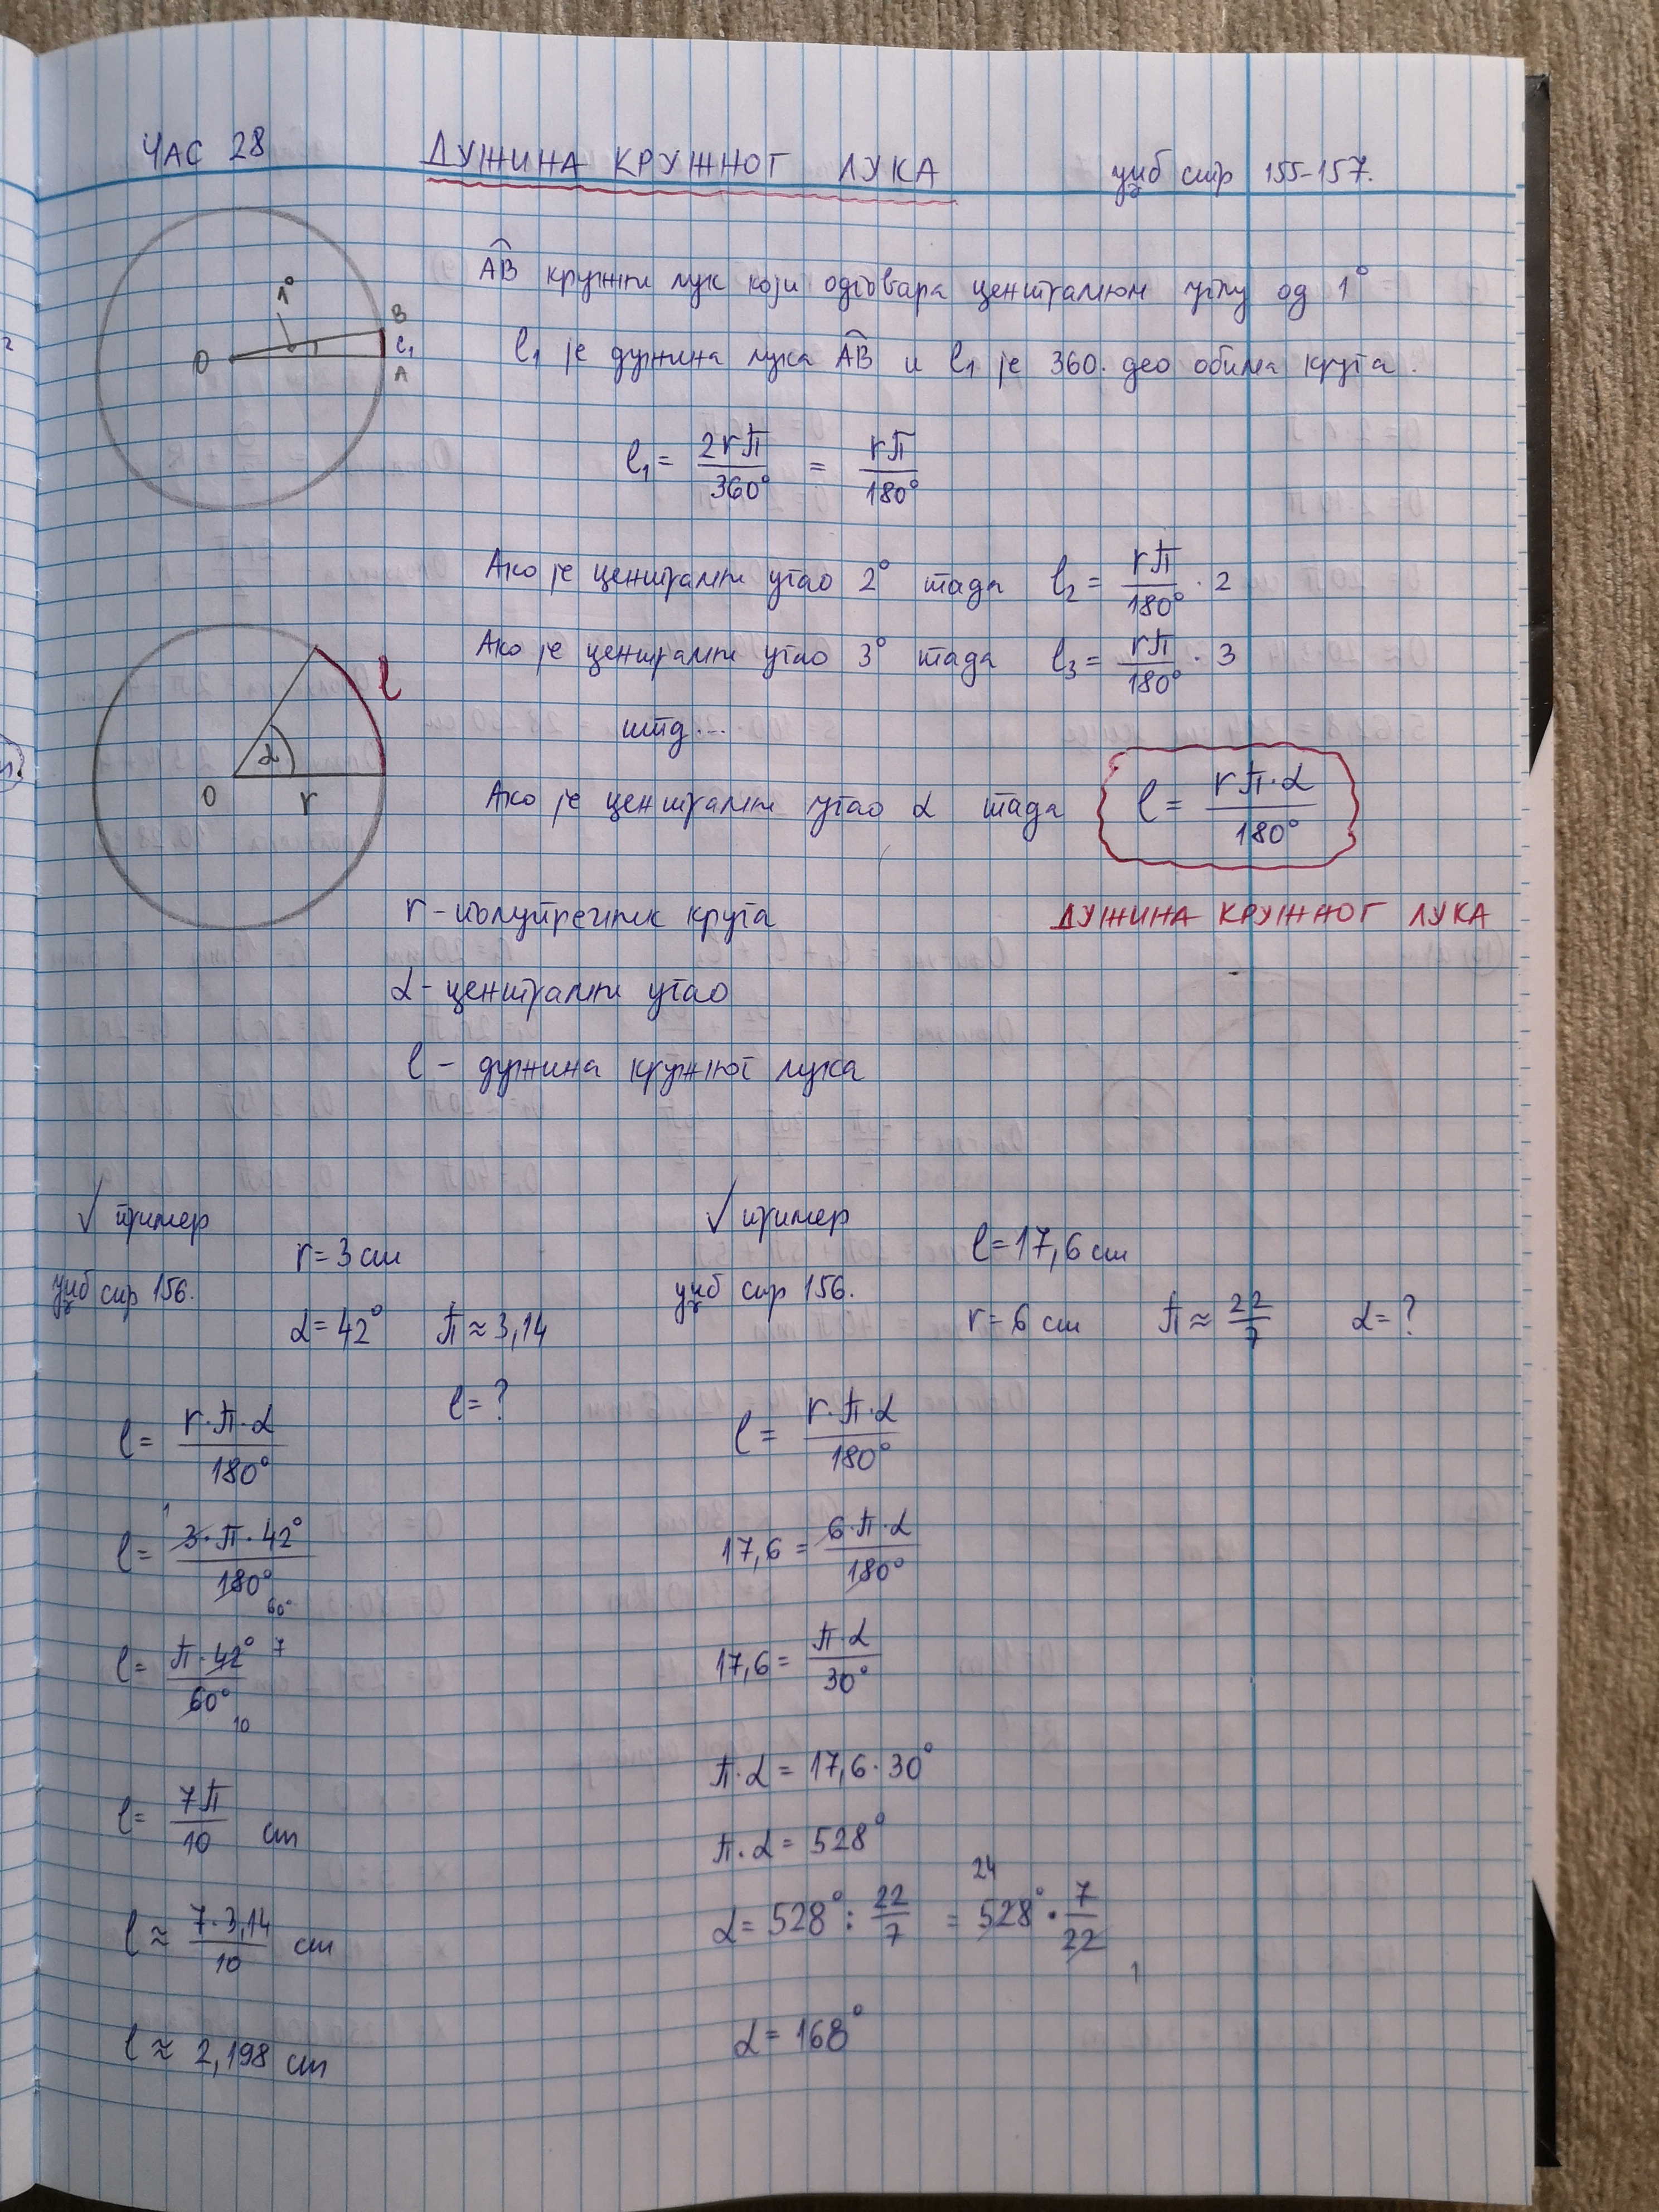 ЧАС 28 ДУЖИНА КРУЖНОГ ЛУКА уџб стр 155-157.
1°
O
B
l₁
A
A͡B кружни лук који одговара централном углу од 1°
l₁ је дужина лука A͡B и l₁ је 360. део обима круга.
l₁ = 2rπ/360° = rπ/180°
Ако је централни угао 2° тада l₂ = rπ/180° · 2
Ако је централни угао 3° тада l₃ = rπ/180° · 3
итд...
Ако је централни угао α тада l = rπ·α/180°
l
α
O
r
ДУЖИНА КРУЖНОГ ЛУКА
r - полупречник круга
α - централни угао
l - дужина кружног лука
✓ пример
уџб стр 156.
r = 3 cm
α = 42° π ≈ 3,14
l = ?
l = r·π·α/180°
l = 3·π·42°/180° 1 60°
l = π·42°/60° 7 10
l = 7π/10 cm
l ≈ 7·3,14/10 cm
l ≈ 2,198 cm
✓ пример
уџб стр 156.
l = 17,6 cm
r = 6 cm π ≈ 22/7 α = ?
l = r·π·α/180°
17,6 = 6·π·α/180°
17,6 = π·α/30°
π·α = 17,6·30°
π·α = 528°
α = 528° : 22/7 = 528° · 7/22 24 1
α = 168°